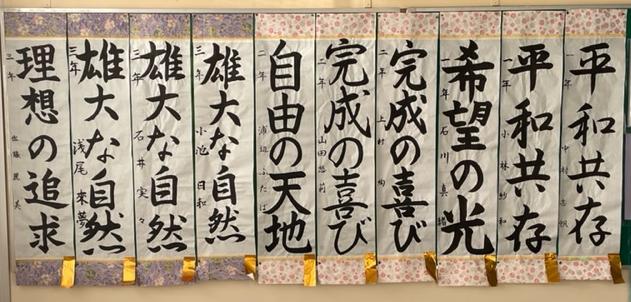 平和共存
一年
平和共存
一年 小林 紗和
希望の光
一年 石川 真
完成の喜び
二年 上村
完成の喜び
二年 山田 悠莉
自由の天地
二年 渡辺 ふたば
雄大な自然
三年 小池 日和
雄大な自然
三年 石井 実々
雄大な自然
三年 浅尾 來夢
理想の追求
三年 佐藤 麗美